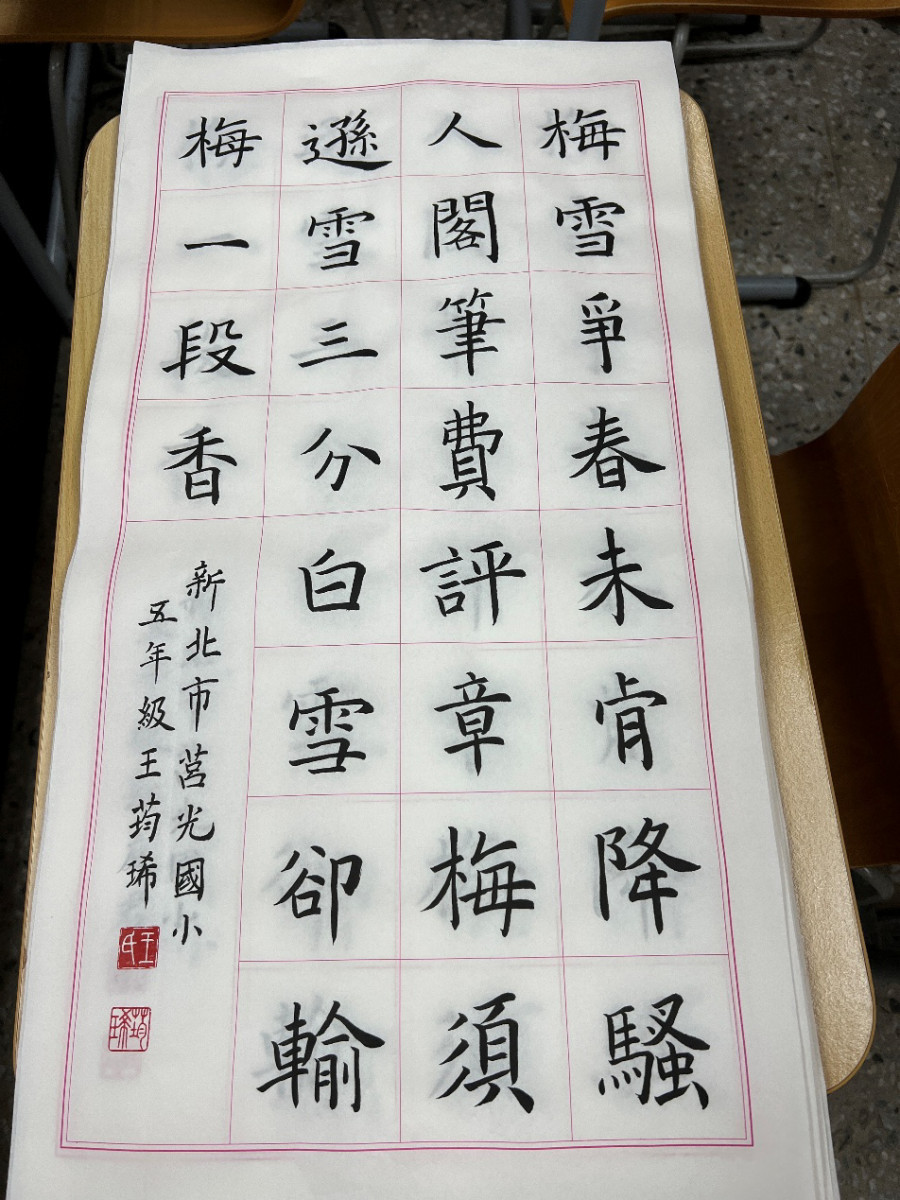 梅雪爭春未肯降騷
人閣筆費評章梅須
遜雪三分白雪卻輸
梅一段香
新北市莒光國小
五年級王荺琋
王氏
荺琋